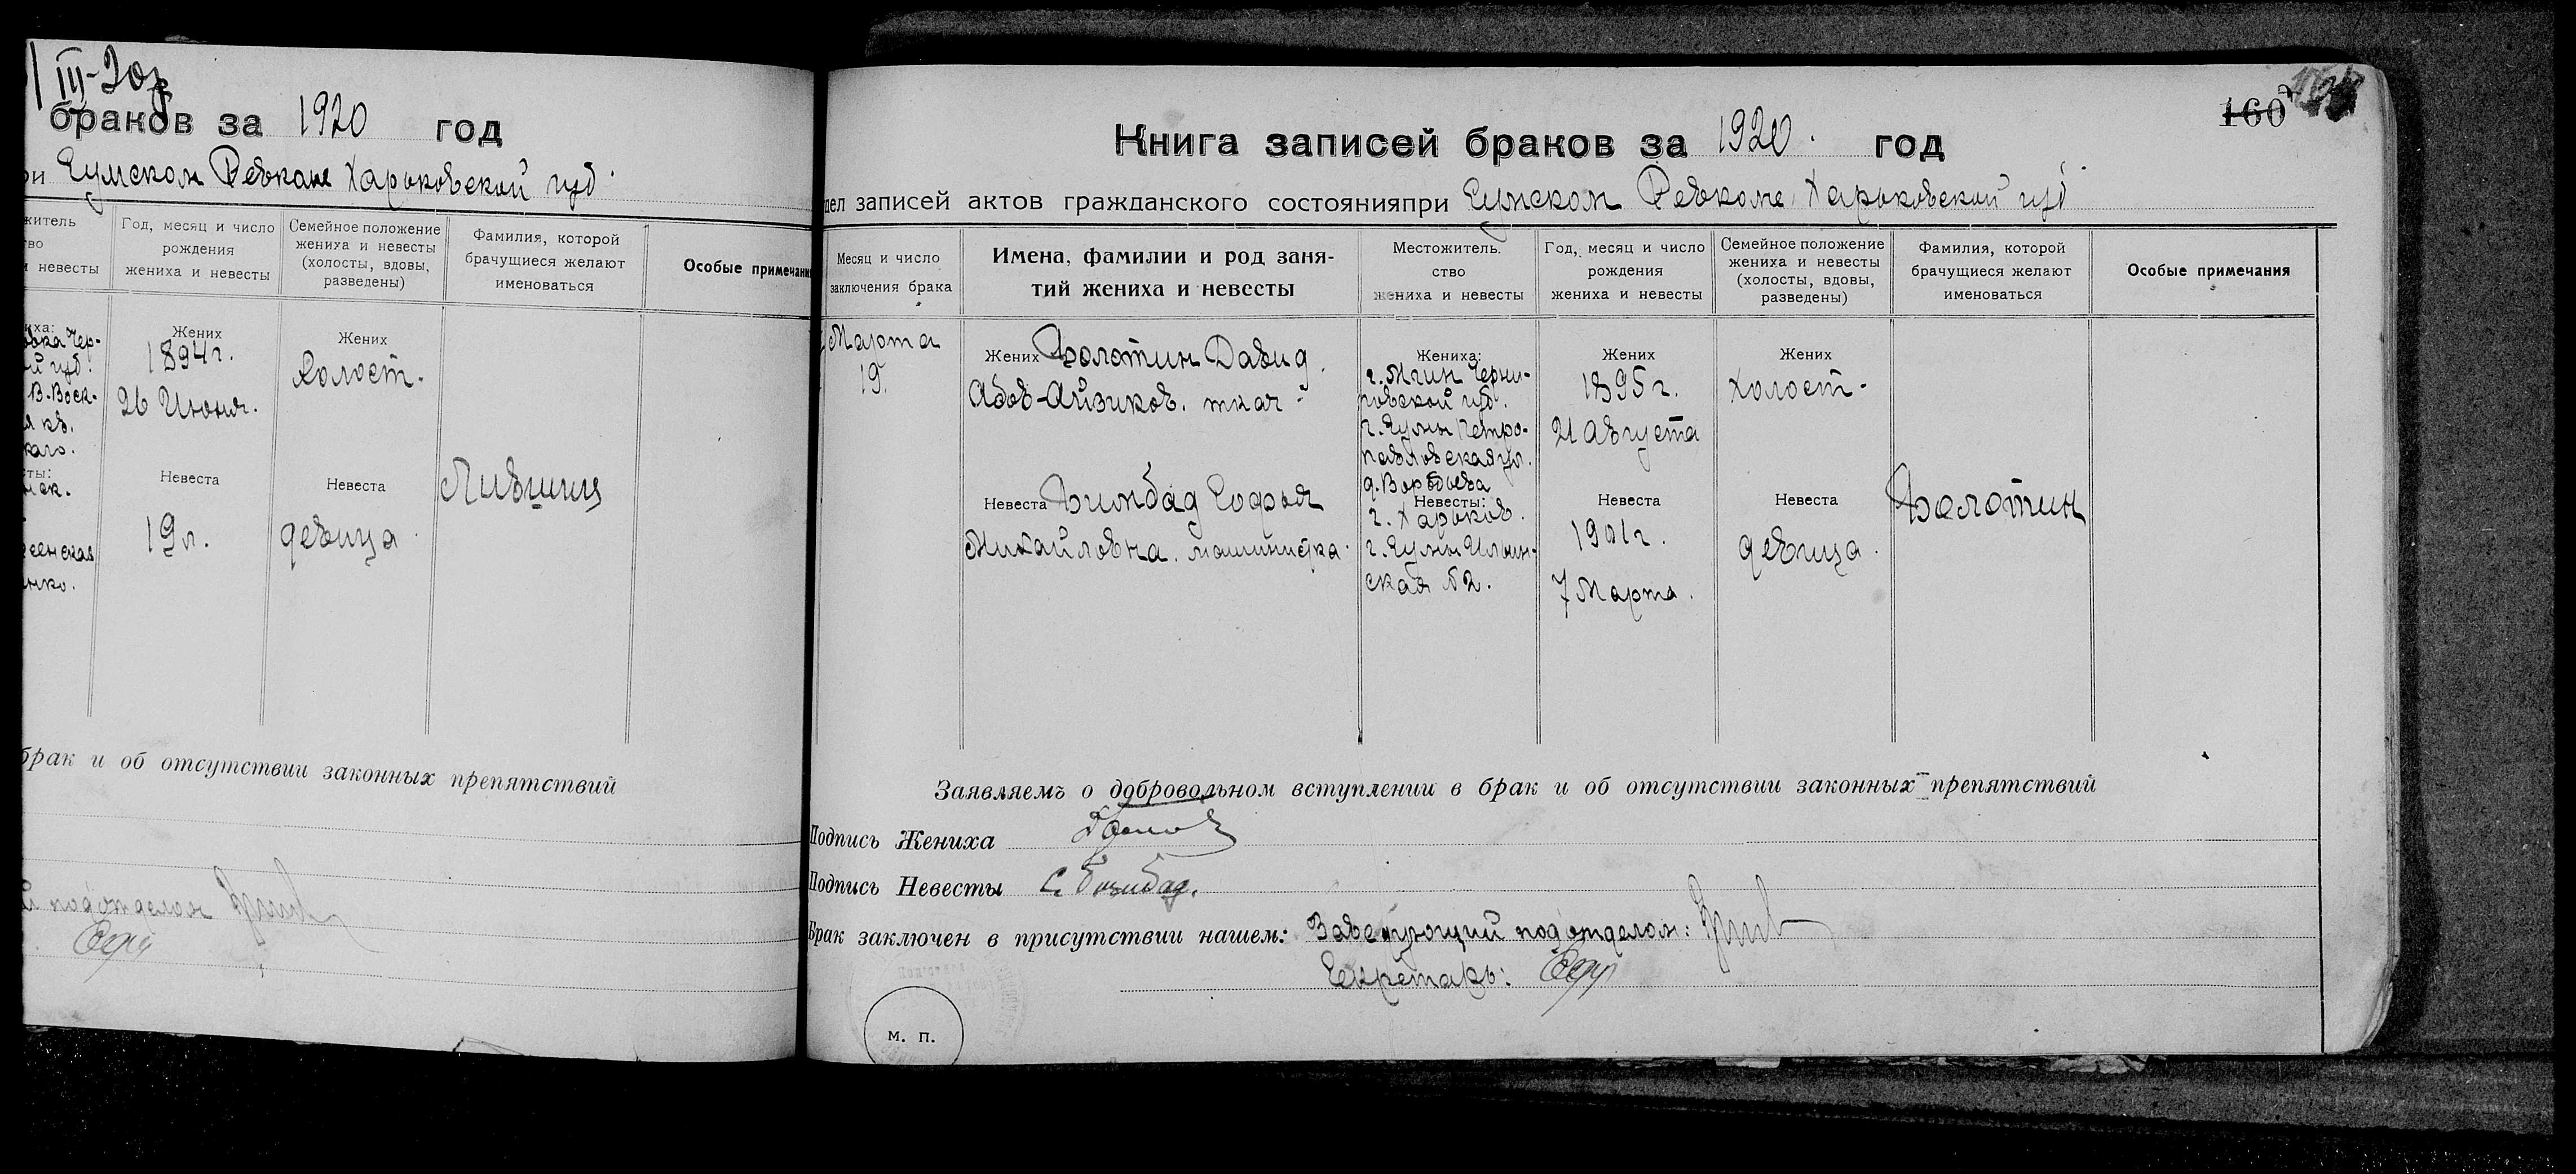 III-20г
браков за 1920 год
при Сумском Ревкоме Харьковской губ.
житель
во
и невесты
Год, месяц и число
рождения
жениха и невесты
Семейное положение
жениха и невесты
(холосты, вдовы,
разведены)
Фамилия, которой
брачущиеся желают
именоваться
Особые примечания
иха:
овка Чер-
ой губ.
В-Воск-
я кв.
каго.
Жених
1894 г.
26 Июня.
Жених
Холост.
сты:
мск.
Невеста
19 л.
Невеста
девица
Лившиц
сенская
енко.
брак и об отсутствии законных препятствий
й подотделом
160
Книга записей браков за 1920. год
дел записей актов гражданского состоянияпри Сумском Ревкоме Харьковской губ
Месяц и число
заключения брака
Имена, фамилии и род заня-
тий жениха и невесты
Местожитель.
ство
жениха и невесты
Год, месяц и число
рождения
жениха и невесты
Семейное положение
жениха и невесты
(холосты, вдовы,
разведены)
Фамилия, которой
брачущиеся желают
именоваться
Особые примечания
Марта
19.
Жених Болотин Давид.
Абов-Айзиков. ткач -
Жениха:
г. Мглин Черни-
говской губ.
г. Сумы Петро-
павловская ул.
д. Воробьева
Жених
1895 г.
21 августа
Жених
холост-
Невеста Бимбад Софья
Михайловна. машинистка.
Невесты:
г. Харьков.
г. Сумы Ильин-
ская №2.
Невеста
1901 г.
7 Марта.
Невеста
девица.
Болотин
Заявляемъ о добровольном вступлении в брак и об отсутствии законных препятствий
Подпись Жениха
Подпись Невесты С. Бимбад.
Брак заключен в присутствии нашем: Заведующий подотделом:
Секретарь:
м. п.